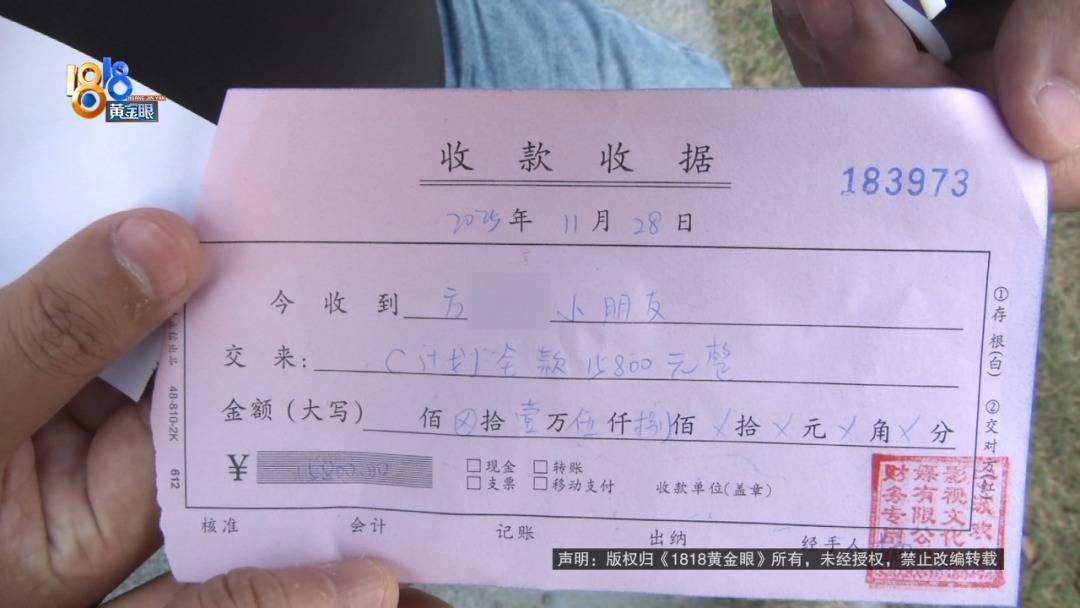 1818
黄金眼
收款收据
183973
2025年 11月 28日
今收到 方 小朋友
交来: C计划全款15800元整
金额(大写) 佰⊗拾壹万伍仟捌佰╳拾╳元╳角╳分
¥ 15800.00
□现金 □转账
□支票 □移动支付
收款单位(盖章)
核准 会计 记账 出纳 经手人
①存根(白) ②交对方(红)
48-810-2K 612
影视文化
媒有限公
财务专用
声明:版权归《1818黄金眼》所有,未经授权,禁止改编转载